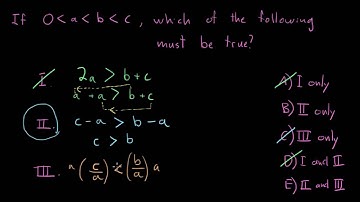 If 0 < a < b < c, which of the following
must be true?
I. 2a > b + c
a + a > b + c
II. c - a > b - a
c > b
III. a (c/a) < (b/a) a
A) I only
B) II only
C) III only
D) I and II
E) II and III